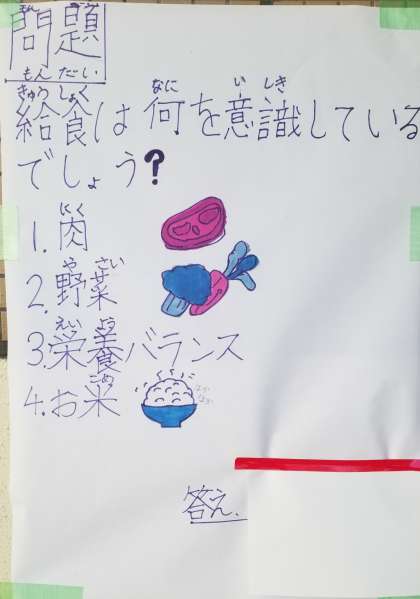 問題
もんだい
給食は何を意識している
きゅうしょく なに いしき
でしょう?
1. 肉
にく
2. 野菜
やさい
3. 栄養バランス
えいよう
4. お米
こめ
答え.